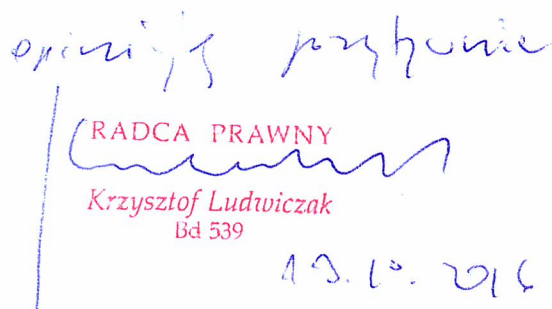 opiniuję pozytywnie
RADCA PRAWNY
Krzysztof Ludwiczak
Bd 539
19.10.2016